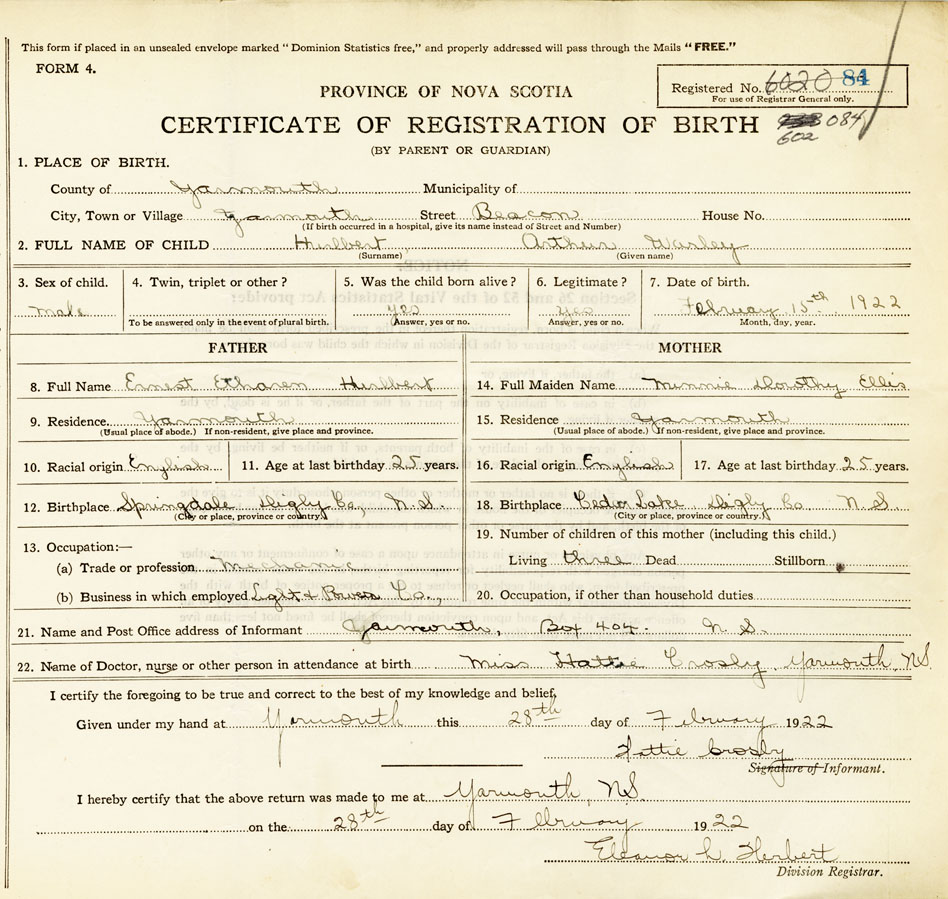 This form if placed in an unsealed envelope marked "Dominion Statistics free," and properly addressed will pass through the Mails "FREE."
FORM 4.
Registered No. 6020 84
For use of Registrar General only.
PROVINCE OF NOVA SCOTIA
CERTIFICATE OF REGISTRATION OF BIRTH 084
602
(BY PARENT OR GUARDIAN)
1. PLACE OF BIRTH.
County of Yarmouth Municipality of
City, Town or Village Yarmouth Street Beacon House No.
(If birth occurred in a hospital, give its name instead of Street and Number)
2. FULL NAME OF CHILD Hurlbert Arthur Warley
(Surname) (Given name)
3. Sex of child. 4. Twin, triplet or other? 5. Was the child born alive? 6. Legitimate? 7. Date of birth.
male yes yes February 15th 1922
To be answered only in the event of plural birth. Answer, yes or no. Answer, yes or no. Month, day, year.
FATHER MOTHER
8. Full Name Ernest Hurlbert 14. Full Maiden Name Minnie Dorothy Ellis
9. Residence Yarmouth 15. Residence Yarmouth
(Usual place of abode.) If non-resident, give place and province. (Usual place of abode.) If non-resident, give place and province.
10. Racial origin English 11. Age at last birthday 25 years. 16. Racial origin English 17. Age at last birthday 25 years.
12. Birthplace Springdale Digby Co. N.S. 18. Birthplace Cedar Lake Digby Co N S
(City or place, province or country.) (City or place, province or country.)
13. Occupation:— 19. Number of children of this mother (including this child.)
(a) Trade or profession Mechanic Living three Dead Stillborn
(b) Business in which employed Light & Power Co., 20. Occupation, if other than household duties
21. Name and Post Office address of Informant Yarmouth, Box 404. N.S.
22. Name of Doctor, nurse or other person in attendance at birth Miss Hattie Crosby Yarmouth, N.S.
I certify the foregoing to be true and correct to the best of my knowledge and belief,
Given under my hand at Yarmouth this 28th day of February 1922
Hattie Crosby
Signature of Informant.
I hereby certify that the above return was made to me at Yarmouth, N.S.
on the 28th day of February 1922
Eleanor L. Herbert
Division Registrar.